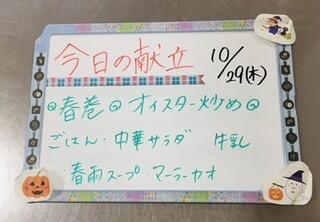 今日の献立 10/29(木)
◎春巻◎オイスター炒め◎
ごはん・中華サラダ 牛乳
春雨スープ・マーラーカオ